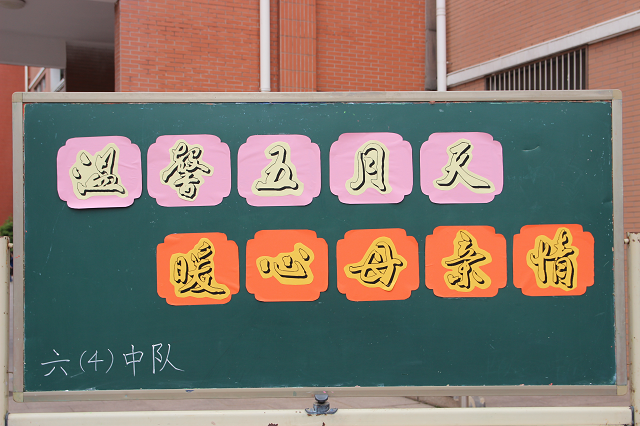 温馨五月天
暖心母亲情
六(4)中队